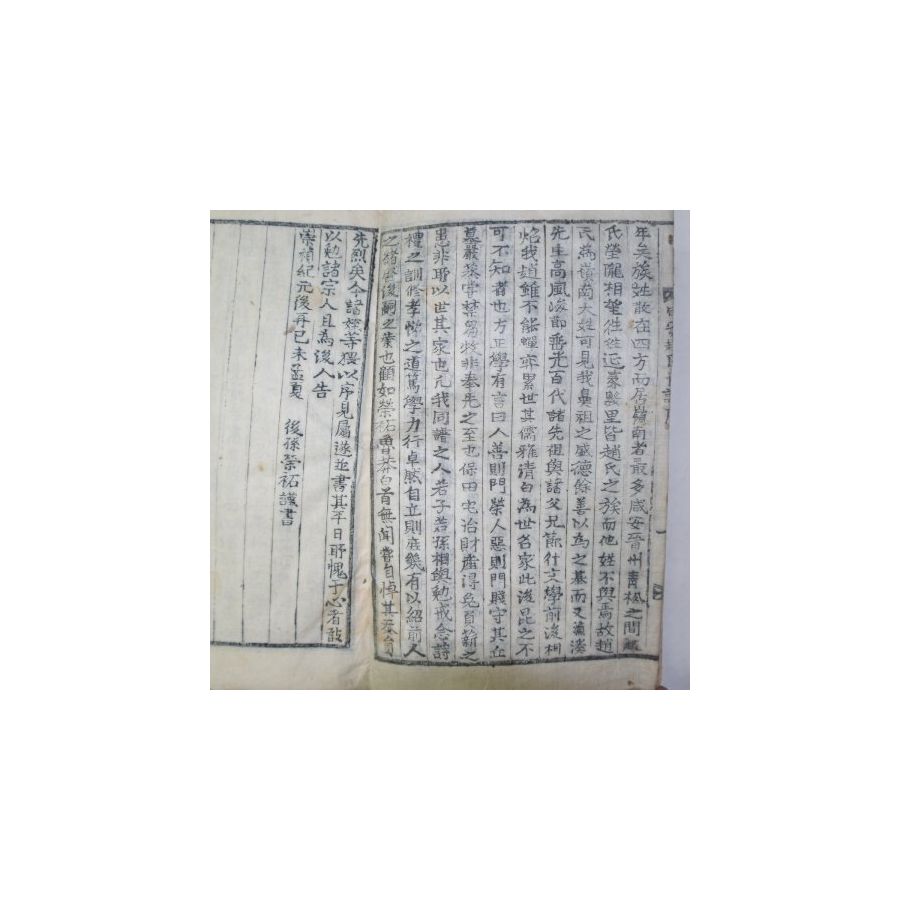 年矣族姓散在四方而居嶺南者最多咸安晉州靑松之間
氏塋隴相望往往近裏數里皆趙氏之族而他姓不與焉故趙
氏為嶺南大姓可見我鼻祖之盛德餘善以為之基而又漁溪
先生高風淩節垂光百代諸先祖與諸父兄節行文學前後相
焰我趙雖不能蟬聯累世其儒雅清白為世名家此後昆之不
可不知者也方正學有言曰人善則門榮人惡則門賤守其丘
墓嚴蒸嘗禁芻牧非奉先之至也保田宅治財產得免負薪之
患非所以世其家也凡我同譜之人若子若孫相與勉戒念詩
禮之訓修孝悌之道篤學力行卓然自立則庶幾有以紹前人
之緖啓後嗣之業也顧如榮祏魯莽白首無聞嘗自悼其忝
先烈矣今諸姪等猥以序見屬遂並書其平日所愧于心者敍
以勉諸宗人且為後人告
崇禎紀元後再己未孟夏 後孫榮祏謹書